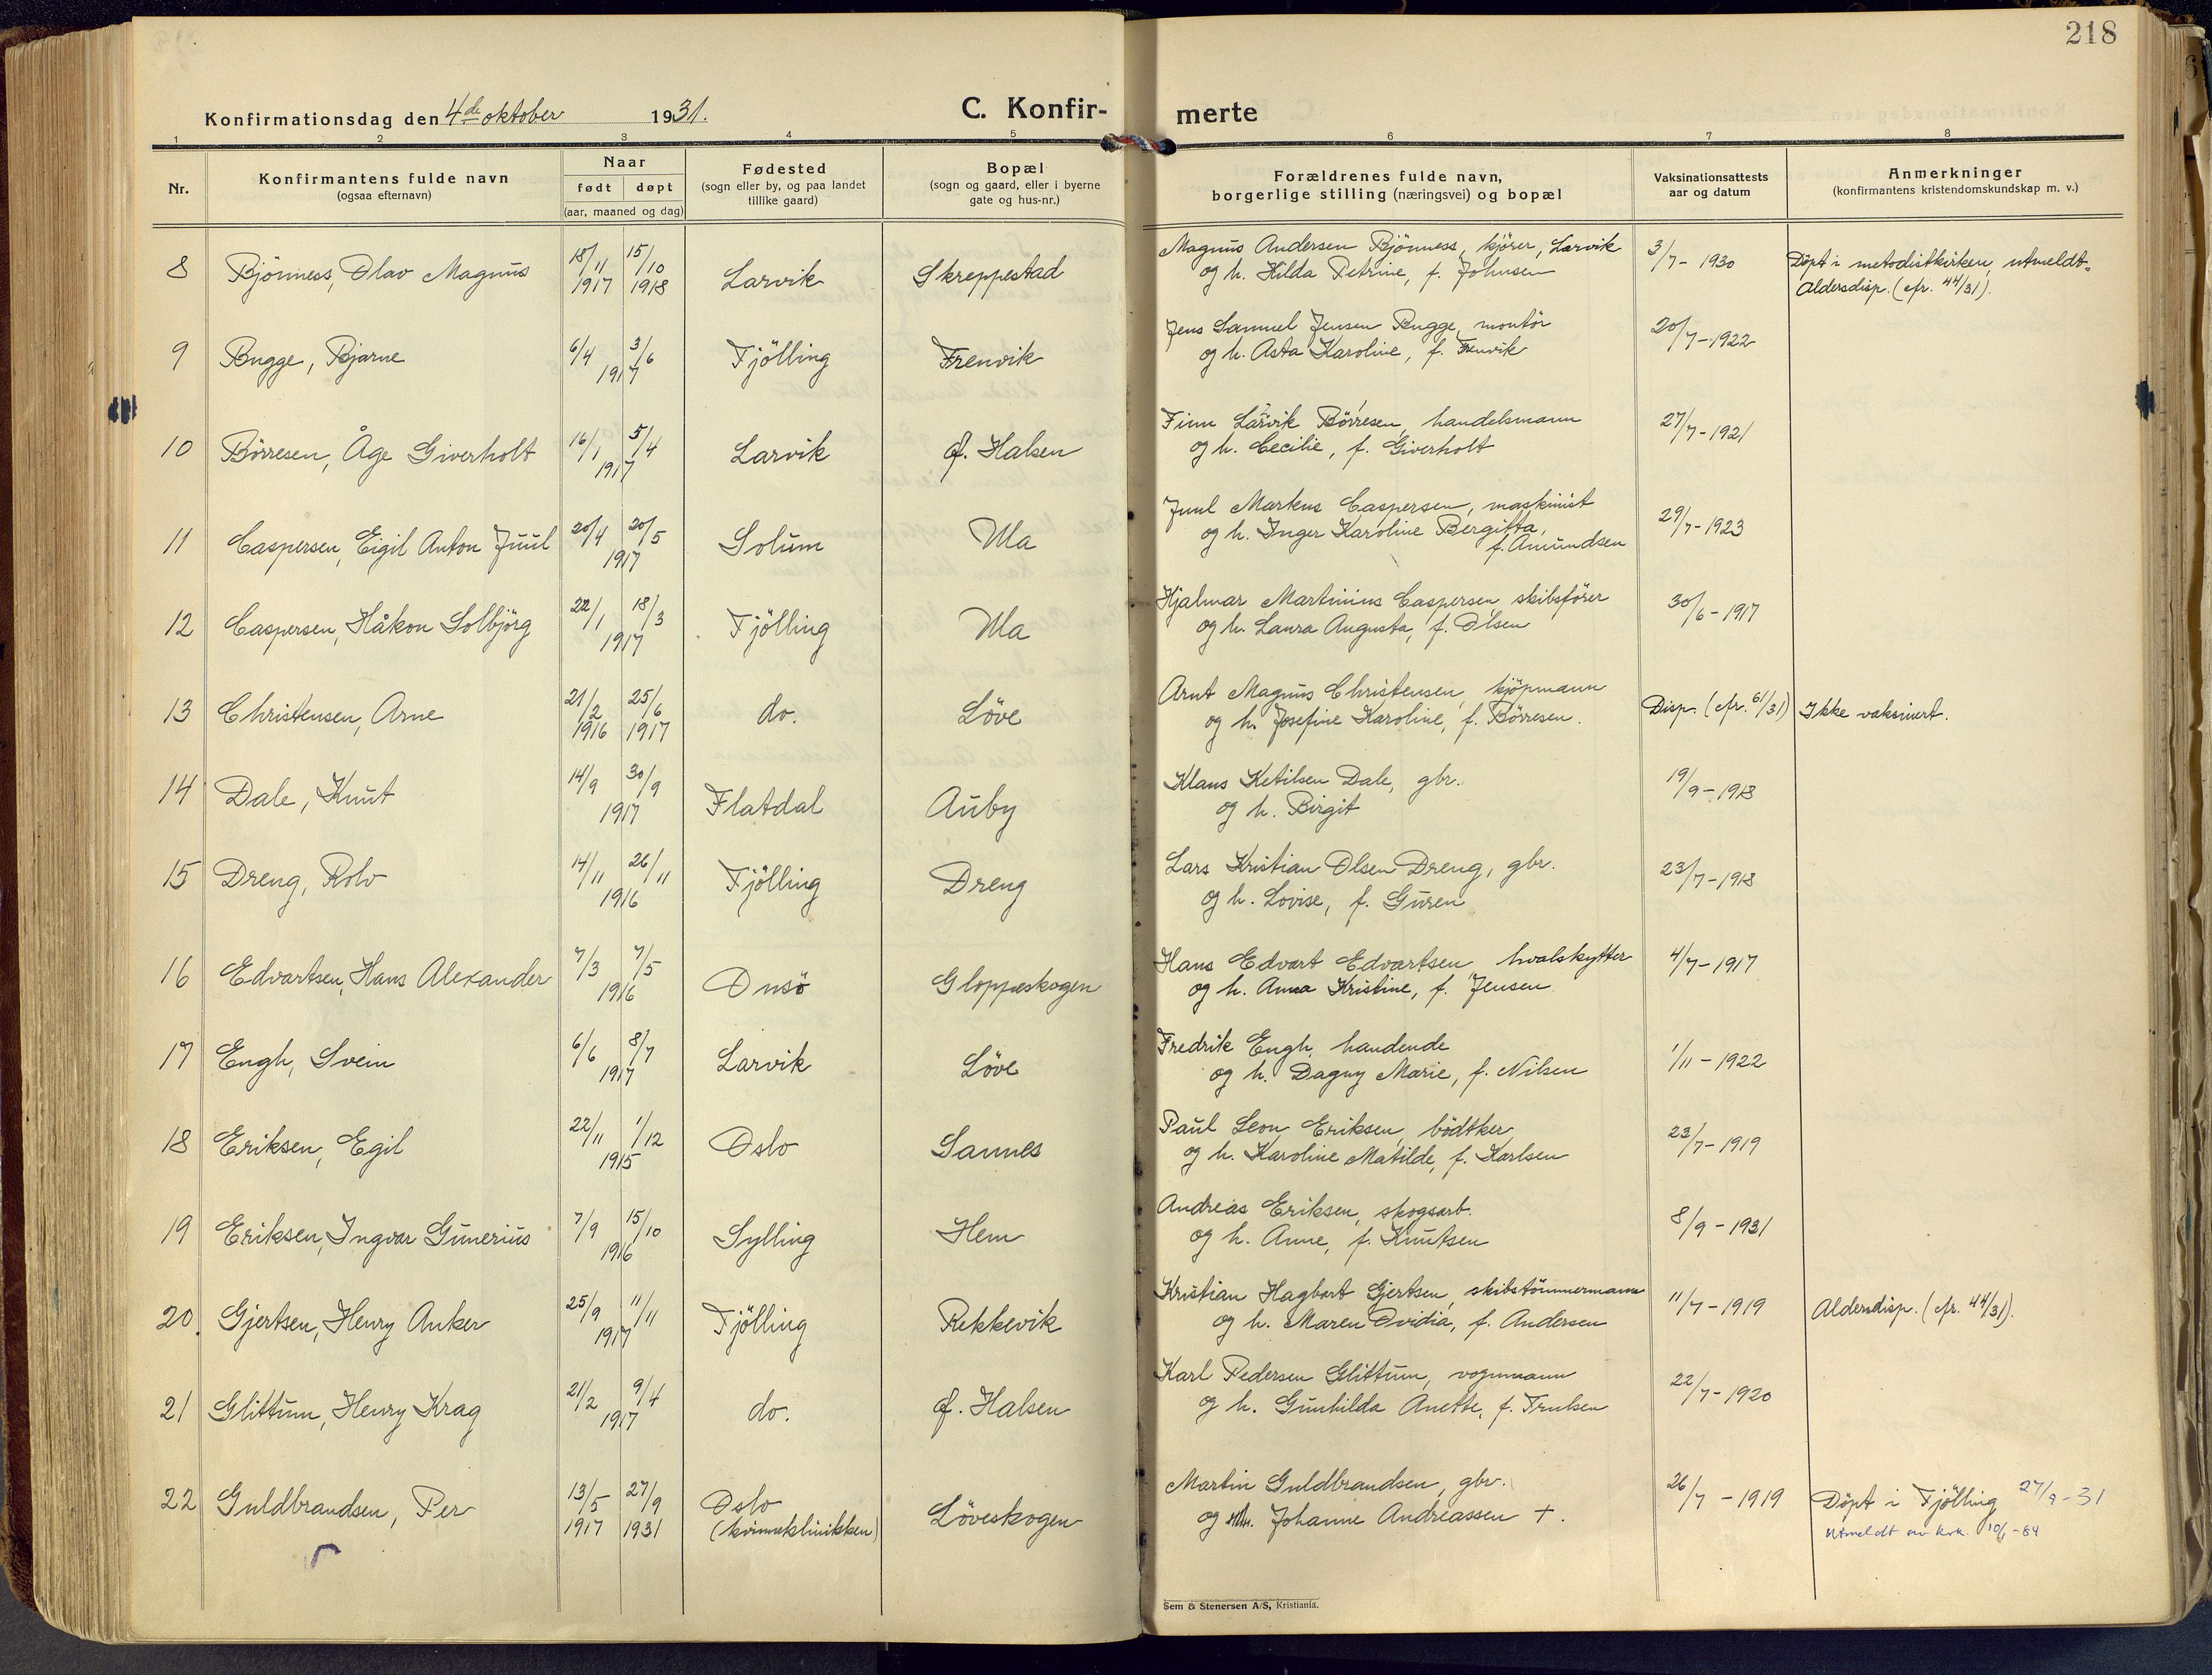 218
Konfirmationsdag den 4de oktober 1931.
C. Konfir-
merte
1 2 3 4 5 6 7 8
Nr.
Konfirmantens fulde navn
(ogsaa efternavn)
Naar
født døpt
(aar, maaned og dag)
Fødested
(sogn eller by, og paa landet
tillike gaard)
Bopæl
(sogn og gaard, eller i byerne
gate og hus-nr.)
Forældrenes fulde navn,
borgerlige stilling (næringsvei) og bopæl
Vaksinationsattests
aar og datum
Anmerkninger
(konfirmantens kristendomskundskap m. v.)
8 Bjönness, Olav Magnus 18/11 1917 15/10 1918 Larvik Skreppestad Magnus Andersen Bjönness, kjörer, Larvik 3/7-1930 Döpt i metodistkirken, utmeldt.
og h. Hilda Petrine, f. Johnsen Aldersdisp. (cfr. 44/31).
9 Bugge, Bjarne 6/4 3/6 1917 Tjölling Frenvik Jens Samuel Jensen Bugge, montör 20/7-1922
og h. Asta Karoline, f. Frenvik
10 Börresen, Åge Giverholt 16/1 5/4 1917 Larvik ø. Halsen Finn Larvik Börresen, handelsmann 27/7-1921
og h. Cecilie, f. Giverholt
11 Caspersen, Eigil Anton Juul 20/4 20/5 1917 Solum Ula Juul Markus Caspersen, maskinist 29/7-1923
og h. Inger Karoline Bergitta,
f. Amundsen
12 Caspersen, Håkon Solbjörg 22/1 18/3 1917 Tjölling Ula Hjalmar Martinius Caspersen, skibsförer 30/6-1917
og h. Laura Augusta, f. Olsen
13 Christensen, Arne 21/2 1916 25/6 1917 do. Löve Arnt Magnus Christensen, kjöpmann Disp. (cfr. 61/31) Ikke vaksinert.
og h. Josefine Karoline, f. Börresen.
14 Dale, Knut 14/9 30/9 1917 Flatdal Auby Klaus Ketilsen Dale, gbr. 19/9-1918
og h. Birgit
15 Dreng, Rolv 14/11 26/11 1916 Tjölling Dreng Lars Kristian Olsen Dreng, gbr. 23/7-1918
og h. Lovise, f. Guren
16 Edvartsen, Hans Alexander 7/3 7/5 1916 Onsö Gloppeskogen Hans Edvart Edvartsen hvalskytter 4/7-1917
og h. Anna Kristine, f. Jensen
17 Engh, Svein 6/6 8/7 1917 Larvik Löve Fredrik Engh, handende 1/11-1922
og h. Dagny Marie, f. Nilsen
18 Eriksen, Egil 22/11 1/12 1915 Oslo Sannes Paul Leon Eriksen, bödtker 23/7-1919
og h. Karoline Matilde, f. Karlsen
19 Eriksen, Ingvar Gunerius 7/9 15/10 1916 Sylling Hem Andreas Eriksen, skogsarb. 8/9-1931
og h. Anne, f. Knutsen
20 Gjertsen, Henry Anker 25/9 11/11 1917 Tjölling Rekkevik Kristian Hagbart Gjertsen, skibstömmermann 11/7-1919 Aldersdisp. (cfr. 44/31).
og h. Maren Ovidia, f. Andersen
21 Glittum, Henry Krag 21/2 9/4 1917 do. ø. Halsen Karl Pedersen Glittum, vognmann 22/7-1920
og h. Gunhilda Anette, f. Trulsen
22 Guldbrandsen, Per 13/5 1917 27/9 1931 Oslo (kvinneklinikken) Löveskogen Martin Guldbrandsen, gbr. 26/7-1919 Döpt i Tjölling 27/9-31
og Johanne Andreassen +. Utmeldt av kirk. 10/1-64
Sem & Stenersen A/S, Kristiania.